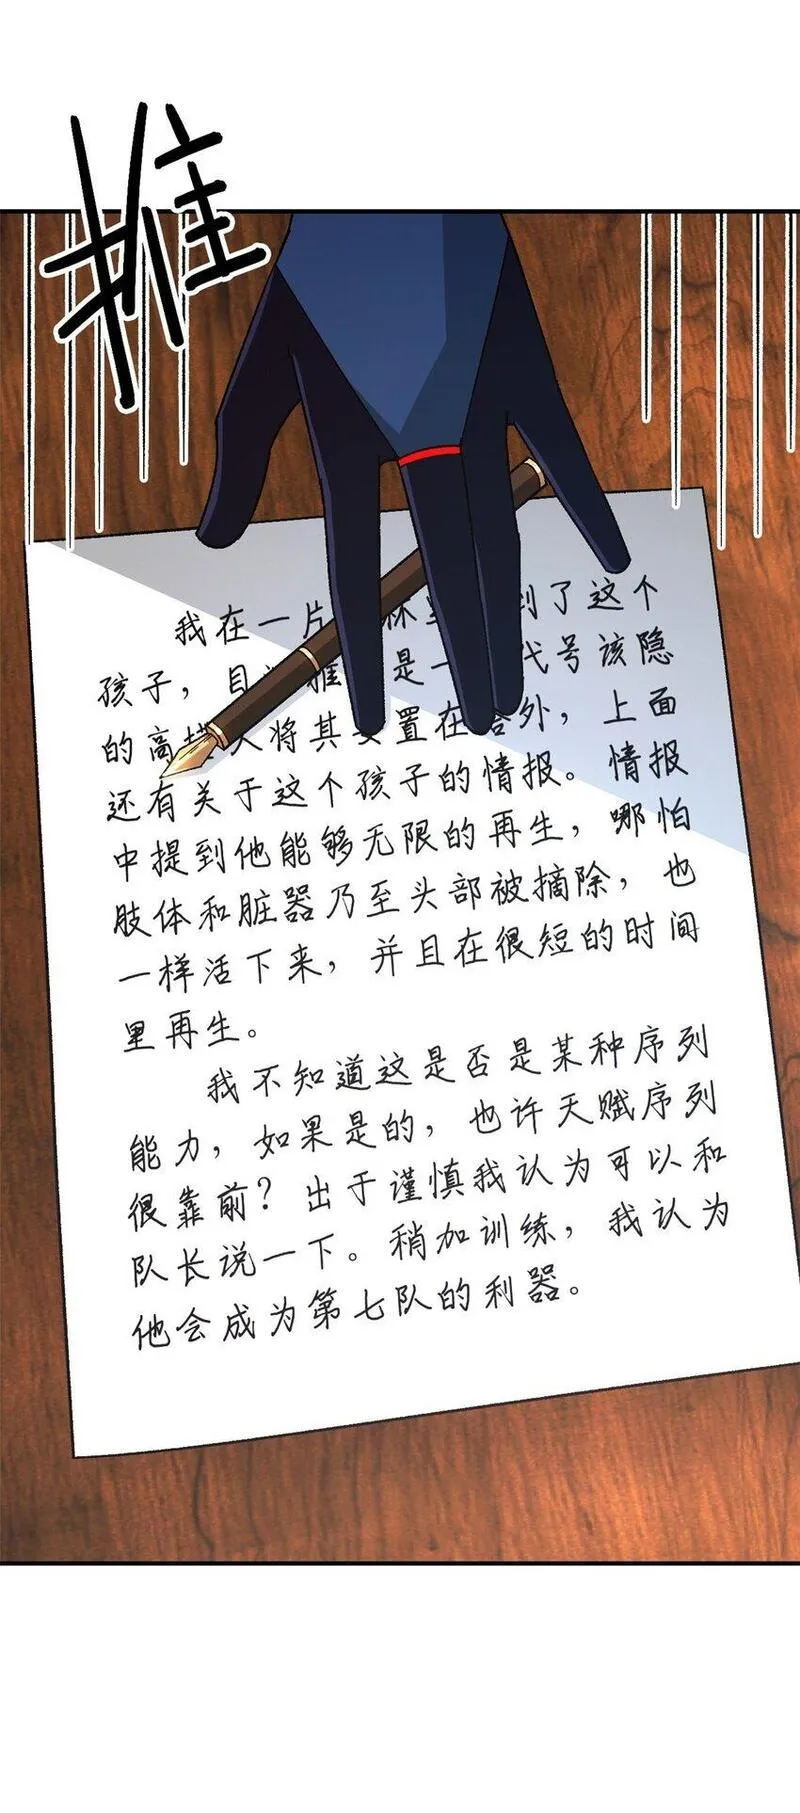 推
我在一片 到了这个
孩子，目 推 是一 代号该隐
的高 人将其安置在舱外，上面
还有关于这个孩子的情报。情报
中提到他能够无限的再生，哪怕
肢体和脏器乃至头部被摘除，也
一样活下来，并且在很短的时间
里再生。
我不知道这是否是某种序列
能力，如果是的，也许天赋序列
很靠前？出于谨慎我认为可以和
队长说一下。稍加训练，我认为
他会成为第七队的利器。